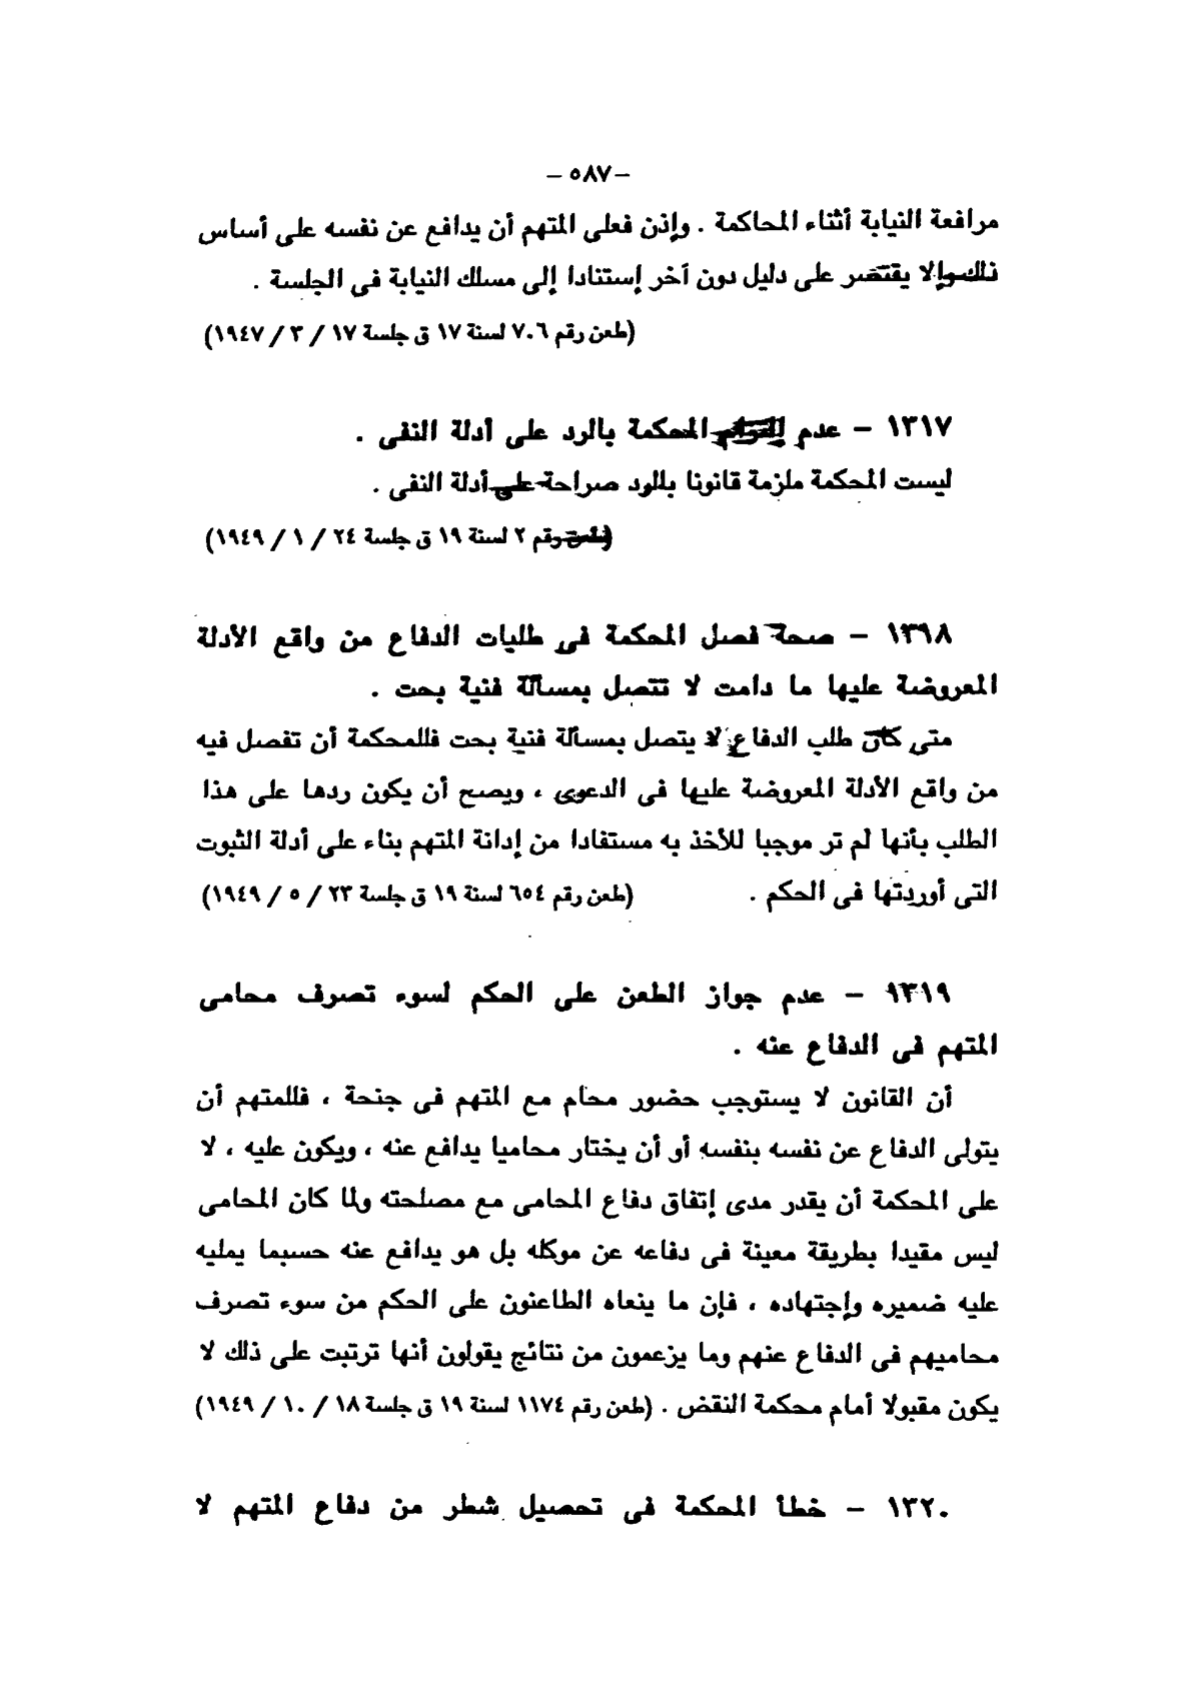 – ٥٨٧ –
مرافعة النيابة أثناء المحاكمة . وإذن فعلى المتهم أن يدافع عن نفسه على أساس
ذلك وإلا يقتصر على دليل دون آخر إستنادا إلى مسلك النيابة فى الجلسة .
(طعن رقم ٧٠٦ لسنة ١٧ ق جلسة ١٧ / ٣ / ١٩٤٧)
١٣١٧ – عدم إلتزام المحكمة بالرد على أدلة النفى .
ليست المحكمة ملزمة قانونا بالرد صراحة على أدلة النفى .
(طعن رقم ٢ لسنة ١٩ ق جلسة ٢٤ / ١ / ١٩٤٩)
١٣١٨ – صحة فصل المحكمة فى طلبات الدفاع من واقع الأدلة
المعروضة عليها ما دامت لا تتصل بمسألة فنية بحت .
متى كان طلب الدفاع لا يتصل بمسألة فنية بحت فللمحكمة أن تفصل فيه
من واقع الأدلة المعروضة عليها فى الدعوى ، ويصح أن يكون ردها على هذا
الطلب بأنها لم تر موجبا للأخذ به مستفادا من إدانة المتهم بناء على أدلة الثبوت
التى أوردتها فى الحكم . (طعن رقم ٦٥٤ لسنة ١٩ ق جلسة ٢٣ / ٥ / ١٩٤٩)
١٣١٩ – عدم جواز الطعن على الحكم لسوء تصرف محامى
المتهم فى الدفاع عنه .
أن القانون لا يستوجب حضور محام مع المتهم فى جنحة ، فللمتهم أن
يتولى الدفاع عن نفسه بنفسه أو أن يختار محاميا يدافع عنه ، ويكون عليه ، لا
على المحكمة أن يقدر مدى إتفاق دفاع المحامى مع مصلحته ولما كان المحامى
ليس مقيدا بطريقة معينة فى دفاعه عن موكله بل هو يدافع عنه حسبما يمليه
عليه ضميره وإجتهاده ، فإن ما ينعاه الطاعنون على الحكم من سوء تصرف
محاميهم فى الدفاع عنهم وما يزعمون من نتائج يقولون أنها ترتبت على ذلك لا
يكون مقبولا أمام محكمة النقض . (طعن رقم ١١٧٤ لسنة ١٩ ق جلسة ١٨ / ١٠ / ١٩٤٩)
١٣٢٠ – خطأ المحكمة فى تحصيل شطر من دفاع المتهم لا